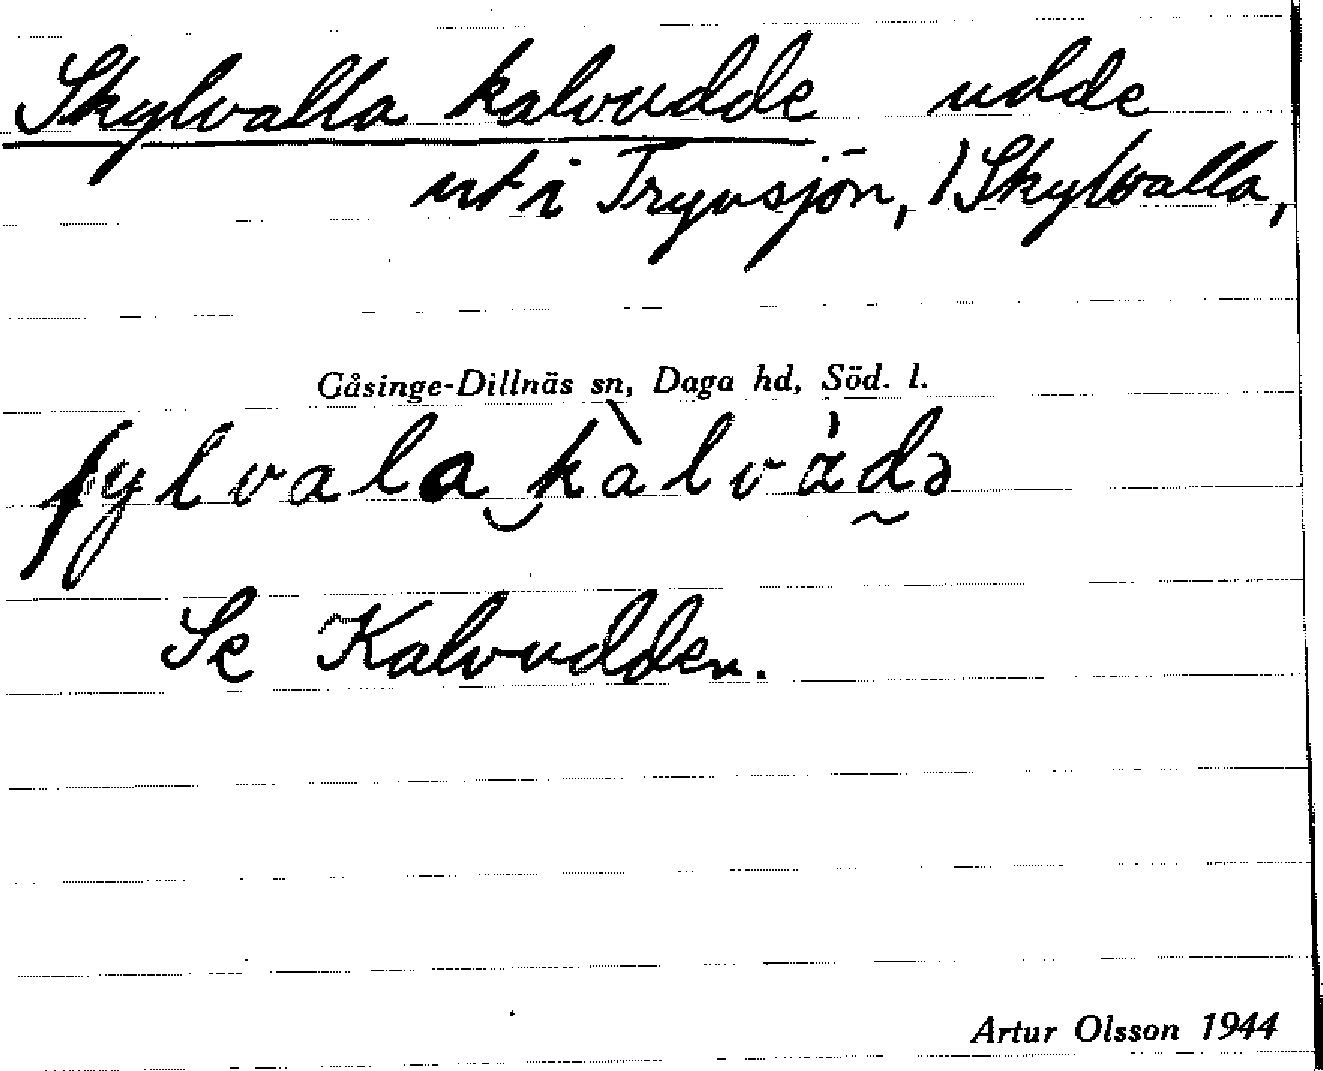 Skylvalla kalvudde udde
ut i Tryvsjön, / Skylvalla,
Gåsinge-Dillnäs sn, Daga hd, Söd. l.
ʃylvala kàlvàdə
Se Kalvudden.
Artur Olsson 1944